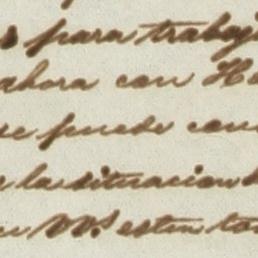 s para trabaj
ahora con He
se puede con
la situacion
VVs. esten to